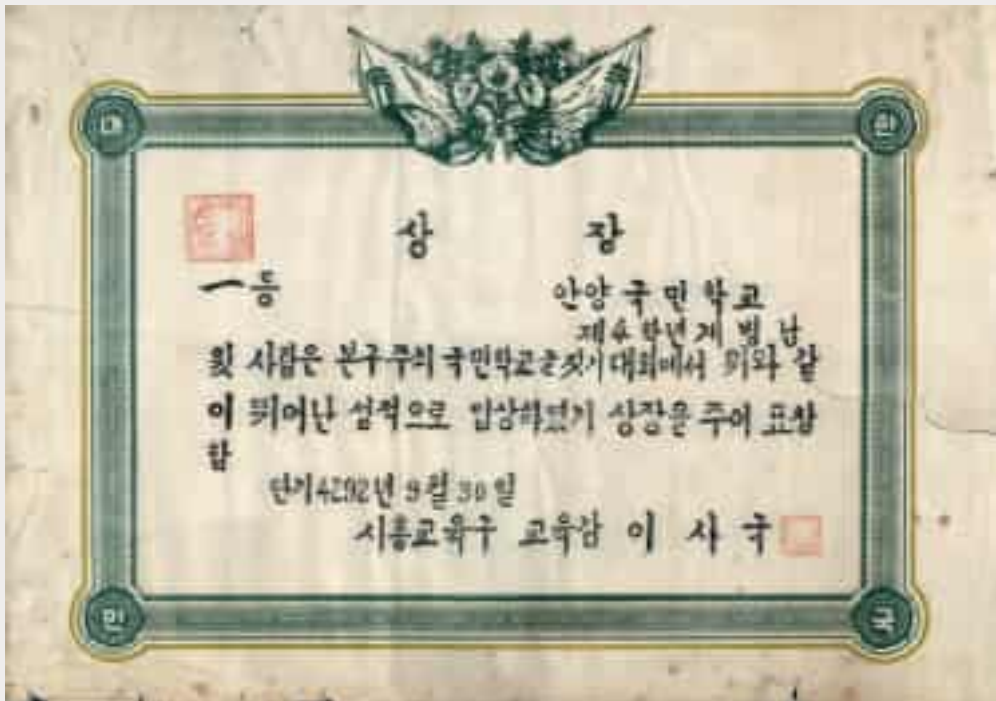 대 한
상 장
一등
안양국민학교
제4학년 계병남
윗 사람은 본구주최 국민학교글짓기대회에서 위와 같
이 뛰어난 성적으로 입상하였기 상장을 주어 표상
함
단기4292년 9월 30일
시흥교육구 교육감 이 사 국
민 국